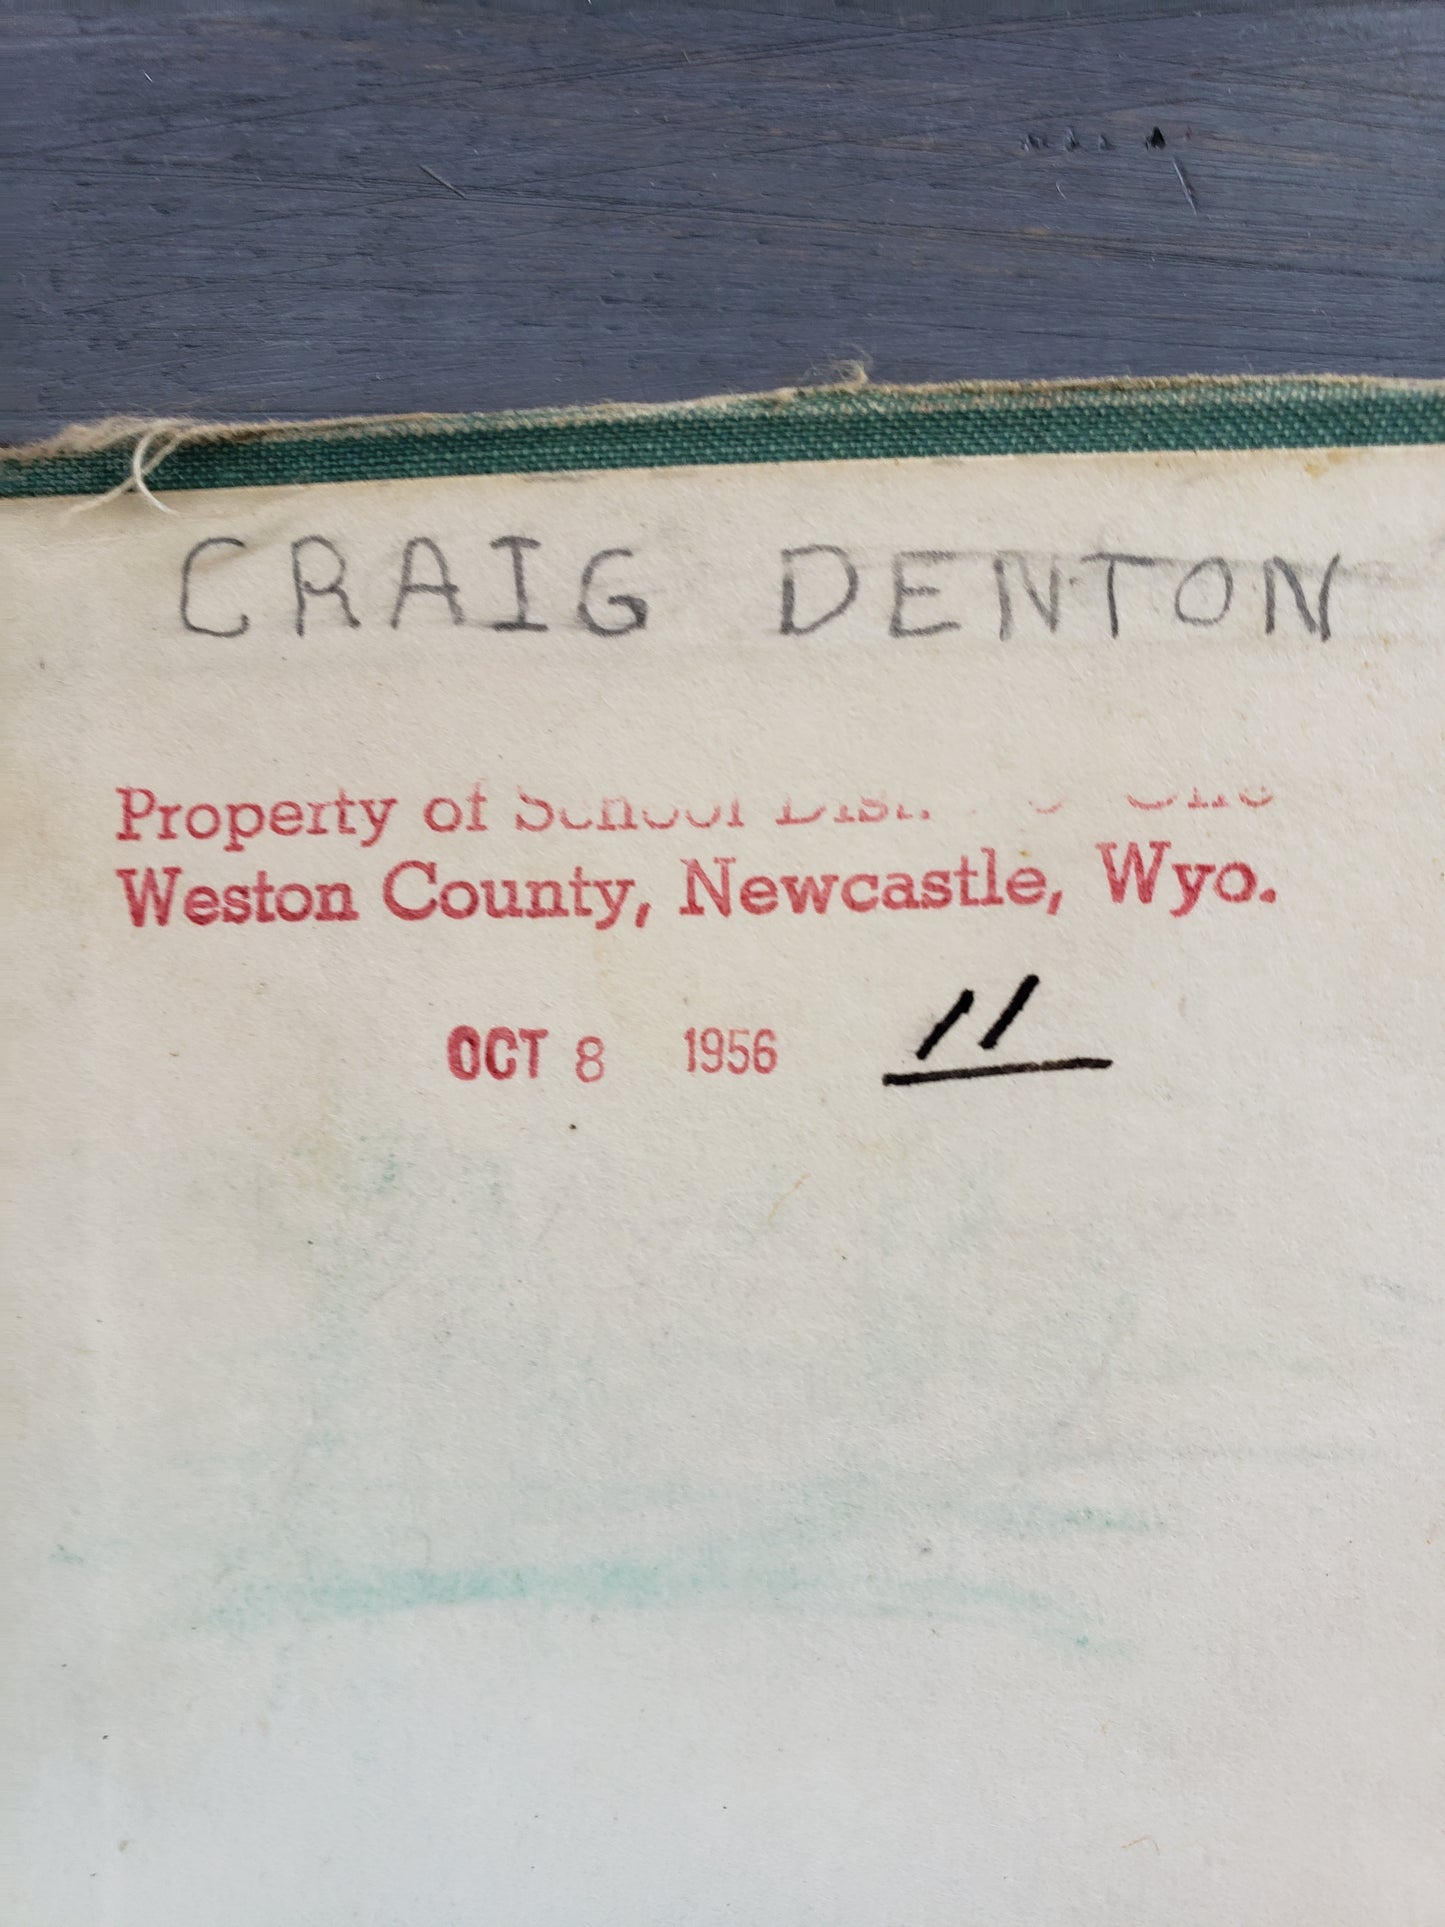 CRAIG DENTON
Property of School Dist. One
Weston County, Newcastle, Wyo.
OCT 8 1956 11